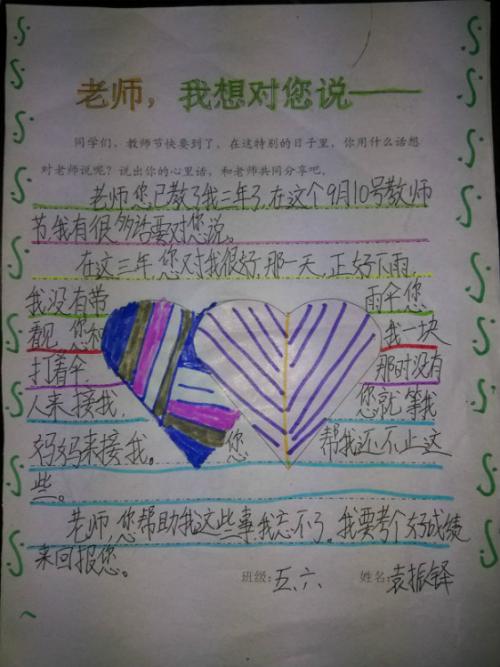 老师，我想对您说——
同学们，教师节快要到了，在这特别的日子里，你用什么话想
对老师说呢？说出你的心里话，和老师共同分享吧。
老师您已教了我二年了，在这个9月10号教师
节，我有很多话要对您说。
在这三年，您对我很好，那一天，正好下雨，
我没有带 雨伞您
看见 您和 我一块
打着伞， 那时没有
人来接我， 您就等我
妈妈来接我。 您 帮我还不止这
些。
老师，您帮助我这些事，我忘不了。我要考个好成绩
来回报您。
班级：五、六 姓名：袁振铎